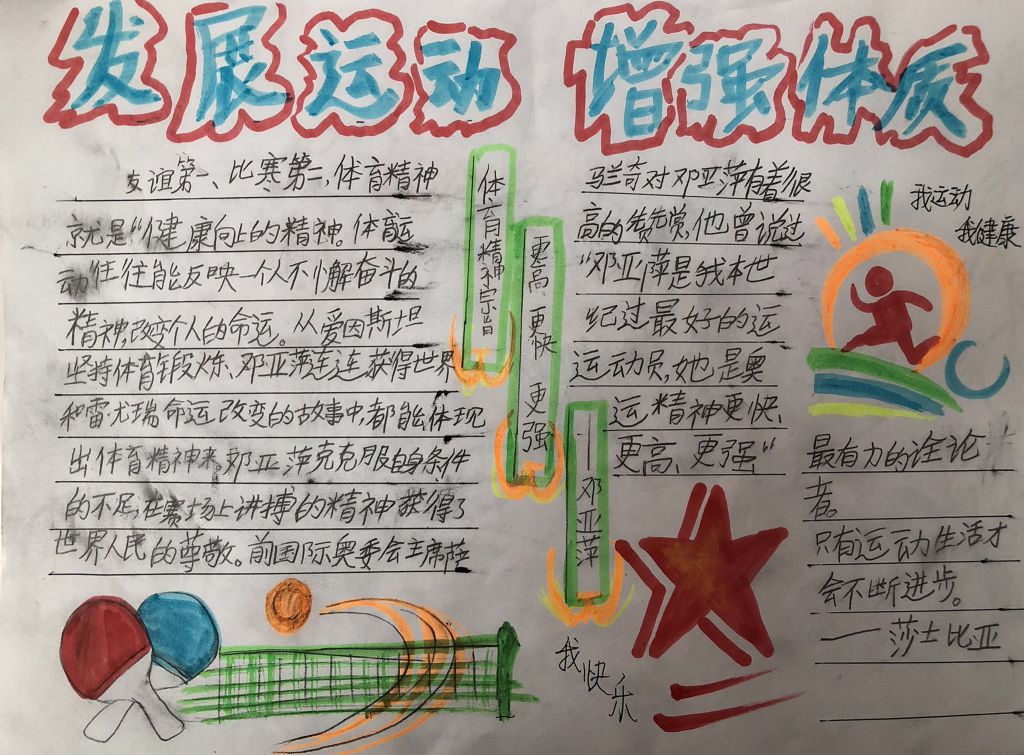 发展运动 增强体质
友谊第一、比赛第二,体育精神
就是“健康向上的精神。体育运
动往往能反映一个人不懈奋斗的
精神,改变个人的命运。从爱因斯坦
坚持体育锻炼、邓亚萍连连获得世界
和雷尤瑞命运改变的故事中,都能体现
出体育精神来。邓亚萍克克服自身条件
的不足,在赛场上进搏的精神获得了
世界人民的尊敬。前国际奥委会主席萨
体育精神宗旨
更高 更快 更强
——邓亚萍
马兰奇对邓亚萍有着很
高的赞觉,他曾说过
“邓亚萍是我本世
纪过最好的运
运动员,她是奥
运精神更快、
更高、更强“
我运动
我健康
最有力的诠论
者。
只有运动生活才
会不断进步。
——莎士比亚
我快乐